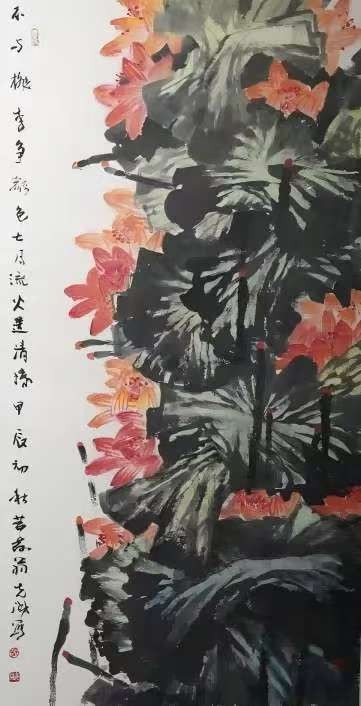 不与桃李争颜色七月流火清甲辰初秋苦翁克写